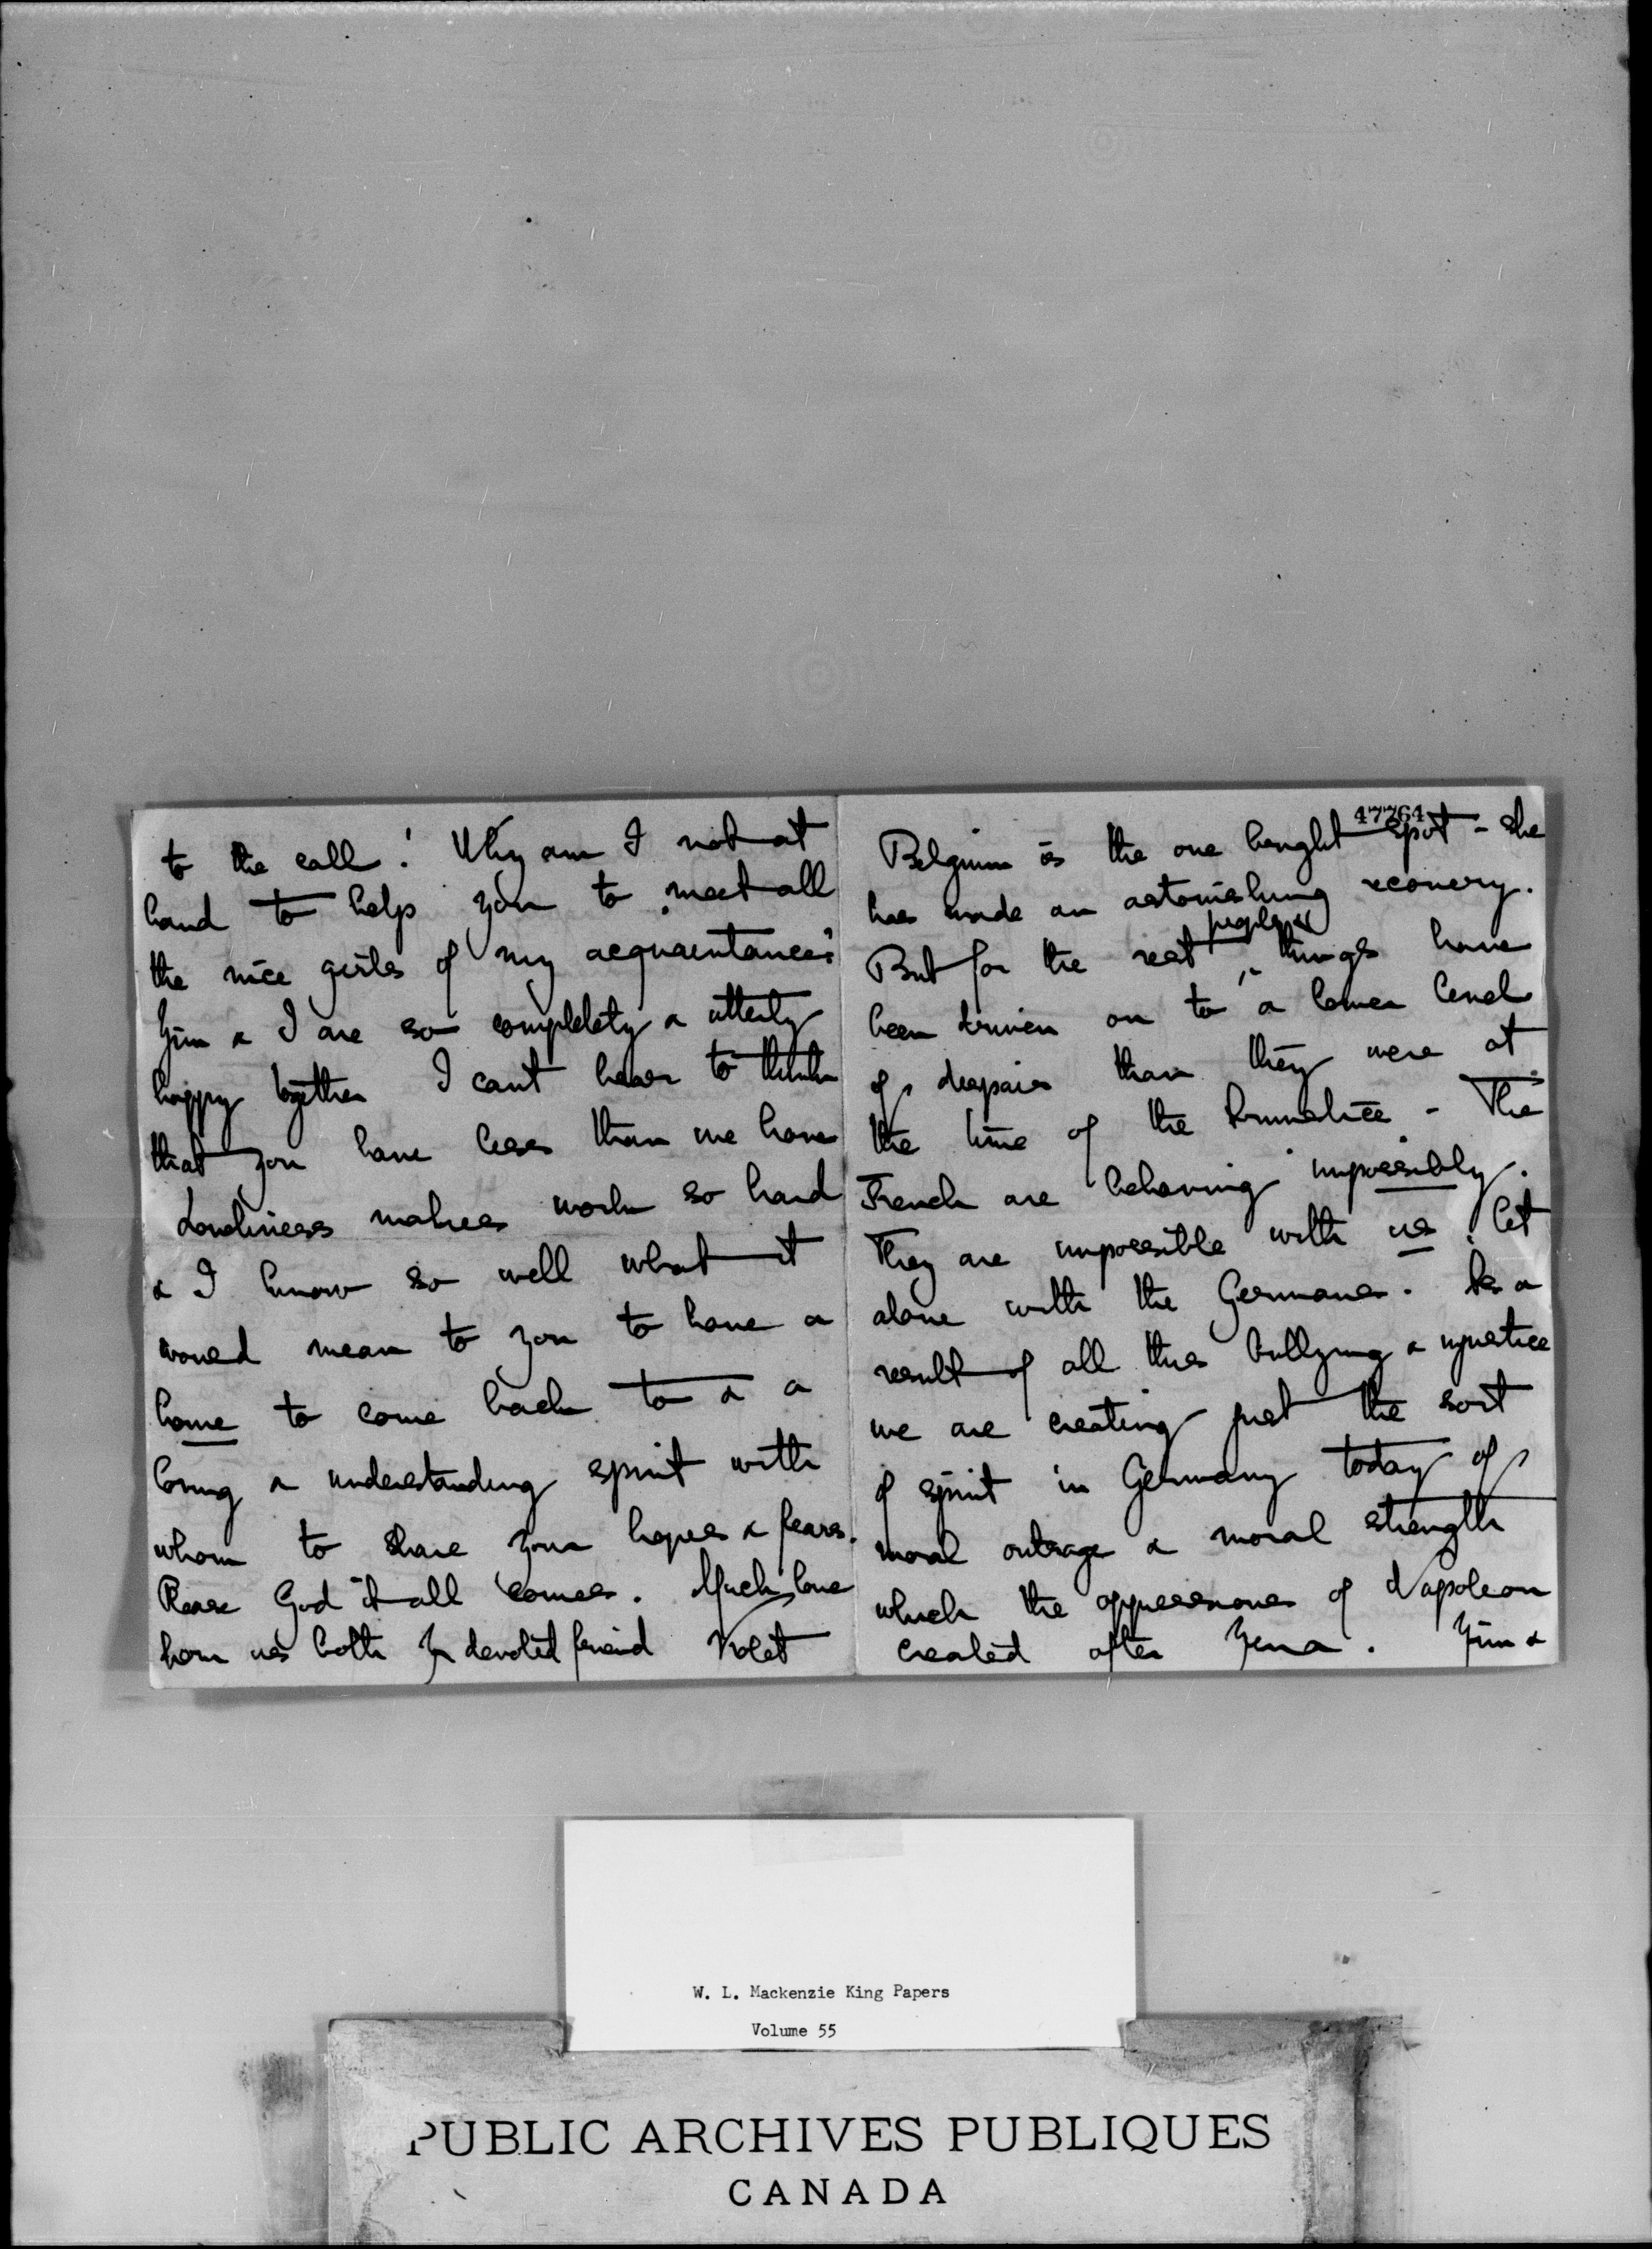 to the call! Why am I not at
hand to help you to meet all
the nice girls of my acquaintance?
Jim & I are so completely & utterly
happy together I cant bear to think
that you have less than we have
Loneliness makes work so hard
& I know so well what it
would mean to you to have a
home to come back to & a
loving & understanding spirit with
whom to share your hopes & fears.
Please God it all comes. Much love
from us both Yr devoted friend Violet
47764
Belgium is the one bright spot - she
has made an astonishing recovery.
people &
But for the rest things have
been driven on to a lower level
of despair than they were at
the time of the Armistice - The
French are behaving impossibly.
They are impossible with us, let
alone with the Germans. As a
result of all this bullying & injustice
we are creating just the sort
of spirit in Germany today of
moral outrage & moral strength
which the oppressions of Napoleon
created after Jena. Jim &
W. L. Mackenzie King Papers
Volume 55
PUBLIC ARCHIVES PUBLIQUES
CANADA